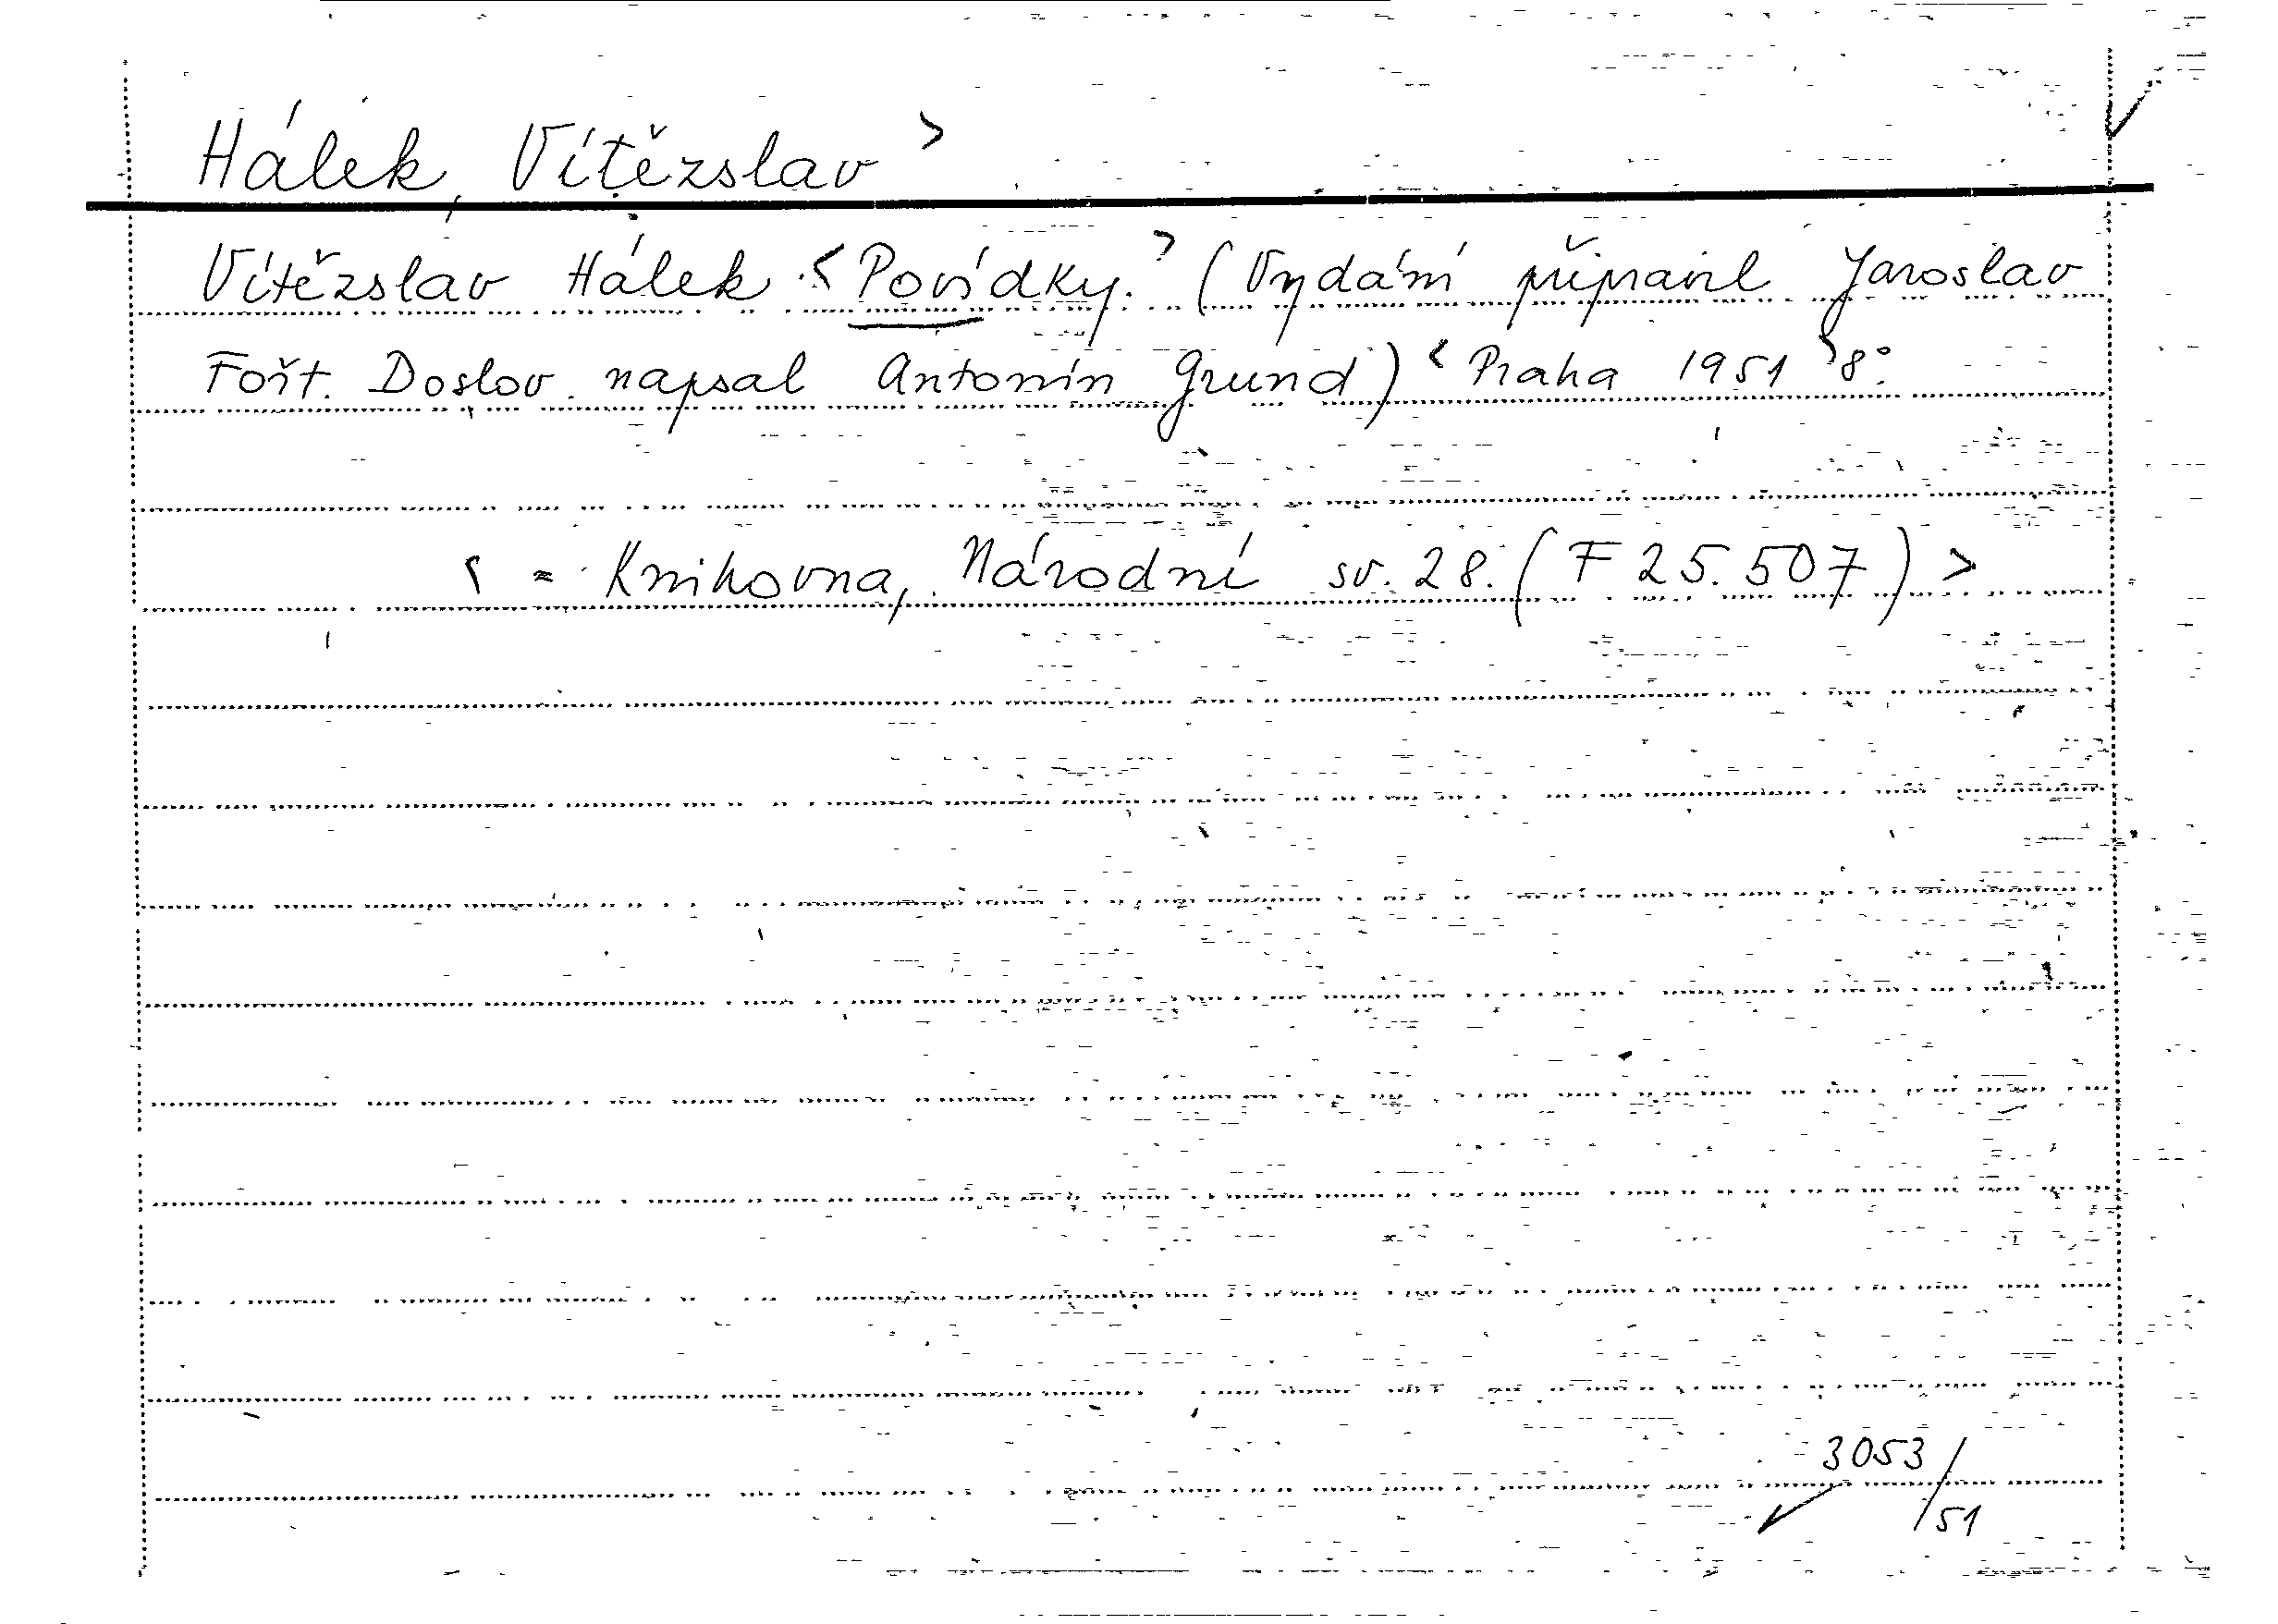 Hálek, Vítězslav >
Vítězslav Hálek. < Povídky. > (Vydání připravil Jaroslav
Fořt. Doslov napsal Antonín Grund) < Praha 1951 > 8°.
< = Knihovna, Národní sv. 28. (F 25.507) >
3053/
51